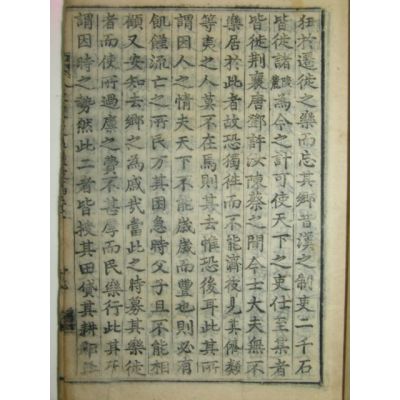 狂於遷徙之樂而忘其鄉昔漢之制吏二千石
皆徙諸陵為今之計可使天下之吏仕至某者
皆徙荆襄唐鄧許汝陳蔡之間今士大夫無不
樂居於此者故恐獨徃而不能濟彼見其儕類
等夷之人莫不在焉則其去惟恐後耳此其所
謂因人之情夫天下不能歲歲而豐也則必有
飢饉流亡之所民方其困急時父子且不能相
顧又安知去鄉之為戚哉當此之時募其樂徙
者而使所過廩之費不甚厚而民樂行此其所
謂因時之勢然此二者皆授其田貸其耕